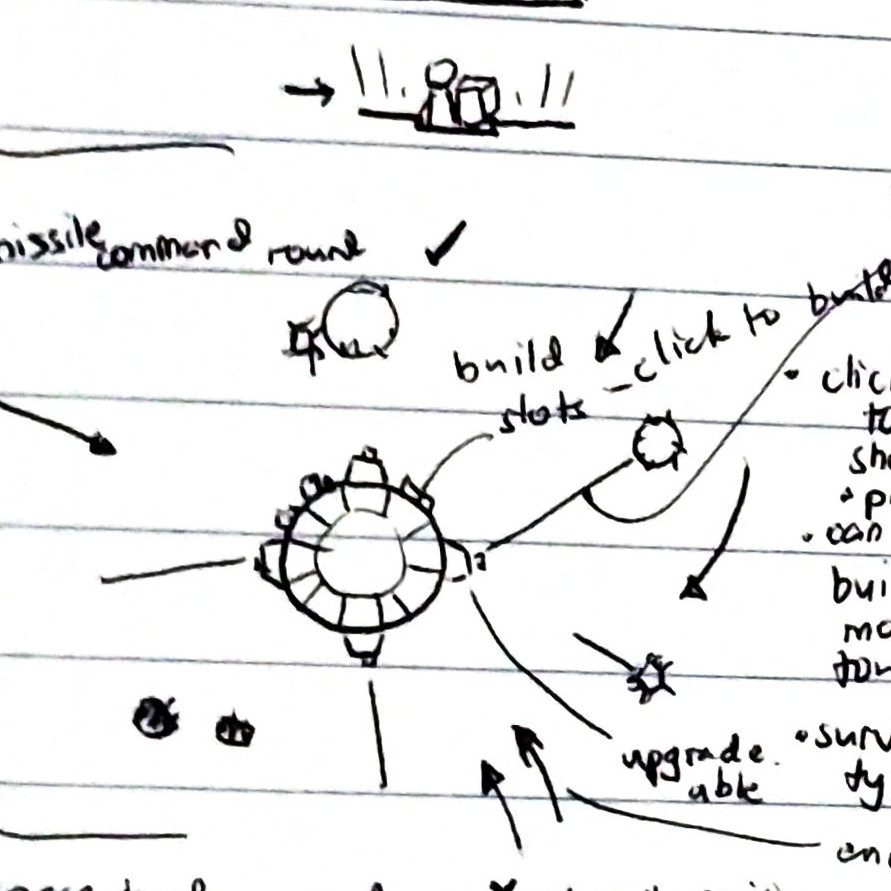 missile command round
build slots - click to build
• clic
to
sho
• p
• can
bui
mo
tow
upgrade able
• surv
ty